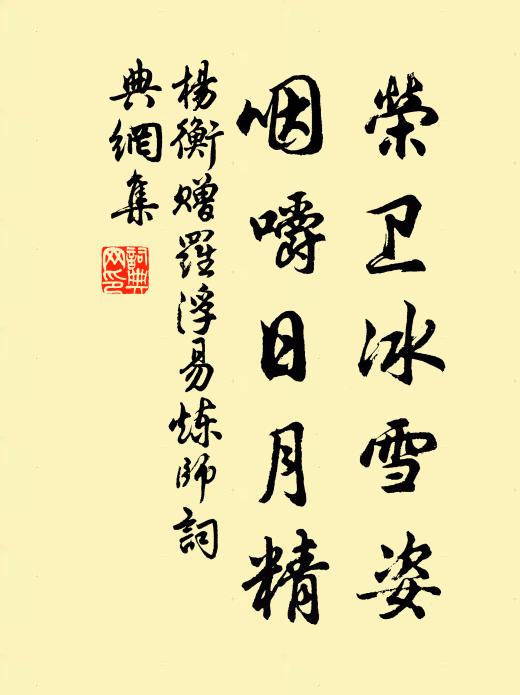 榮卫冰雪姿
咽嚼日月精
楊衡贈羅浮易炼師詞
典網集
詞典
网印